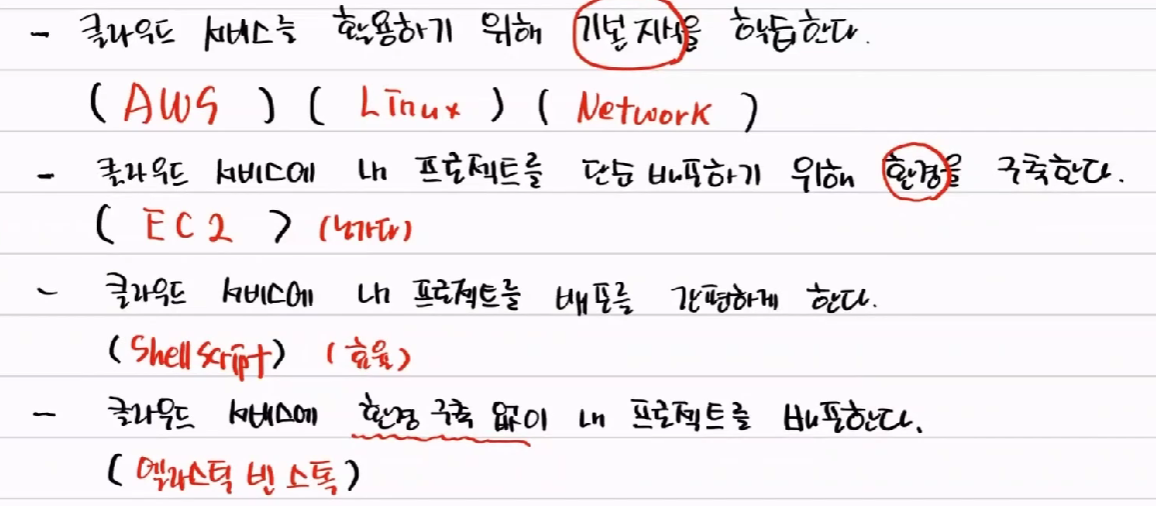 - 클라우드 서비스를 활용하기 위해 기본 지식을 학습한다.
( AWS ) ( Linux ) ( Network )
- 클라우드 서비스에 내 프로젝트를 단순 배포하기 위해 환경을 구축한다.
( EC2 ) (노가다)
- 클라우드 서비스에 내 프로젝트를 배포를 간편하게 한다.
(Shell script) (효율)
- 클라우드 서비스에 환경 구축 없이 내 프로젝트를 배포한다.
(엘라스틱 빈 스톡)